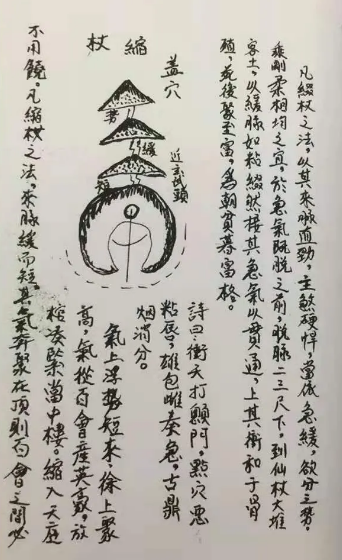 凡綴杖之法,以其來脉直勁,主煞硬悍,當依急緩,欲分三势。
乘剛柔相均之宜,於急氣既脱之前,脱脉二三尺下,到仙杖大堆
客土,以緩脉如粘綴然接其急氣以貫通,上其衝和子骨
殖,死後聚至富,為朝貧暮富格。
詩曰:衝天打顖門,點穴悪
粘唇。雄包雌奏急,古鼎
烟消分。
縮杖
蓋穴
势
緩
短
近玄武頭
氣上浮勢短來,徐上聚
高,氣從百會産英豪。放
棺湊緊當中樓。縮入天庭
不用饒。凡縮杖之法,來脉緩而短,其氣奔聚在頂則百會之間必